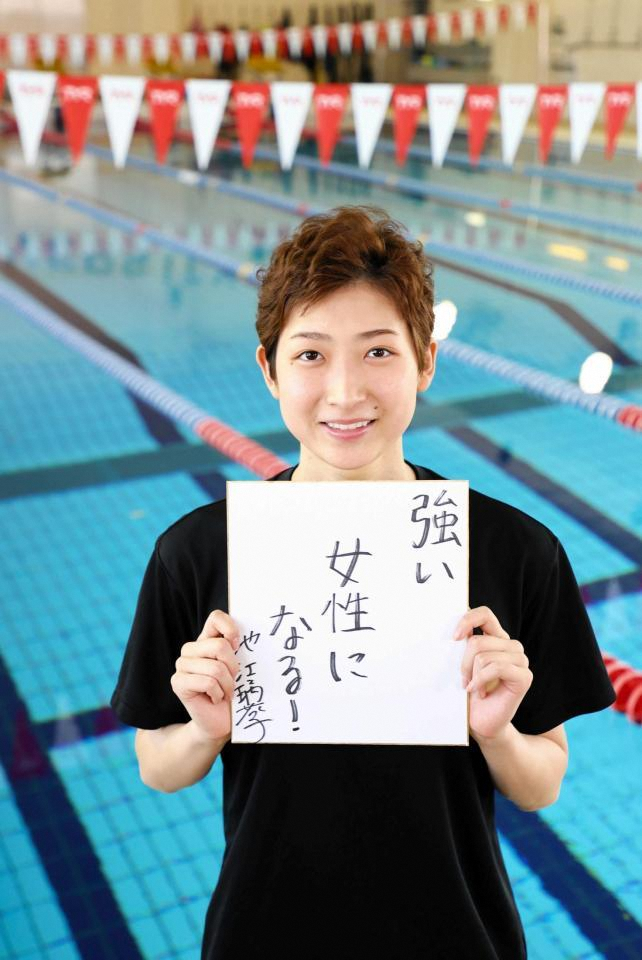 強い
女性に
なる!
池江璃花子